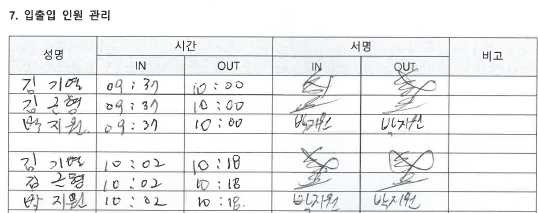 7. 입출입 인원 관리
성명 시간 서명 비고
IN OUT IN OUT
김 기열 09:37 10:00
김 근형 09:37 10:00
박지원 09:37 10:00 박지원 박지원
김 기열 10:02 10:18
김 근형 10:02 10:18
박지원 10:02 10:18 박지원 박지원